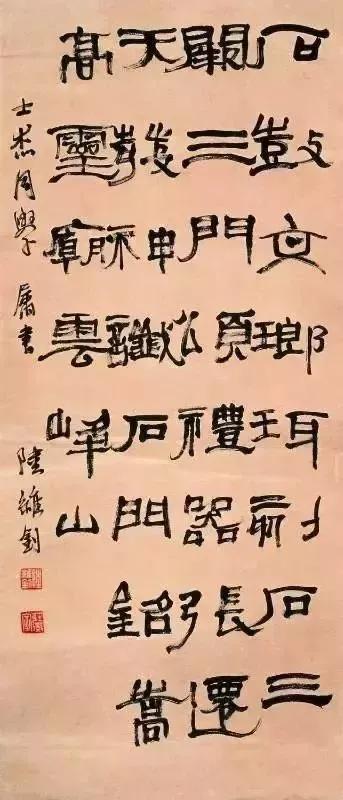 石鼓文瑯琊刻石三
闕三門頌禮器張遷
天發神讖石門銘嵩
高靈廟雲峰山
士杰同學屬書 陸維釗